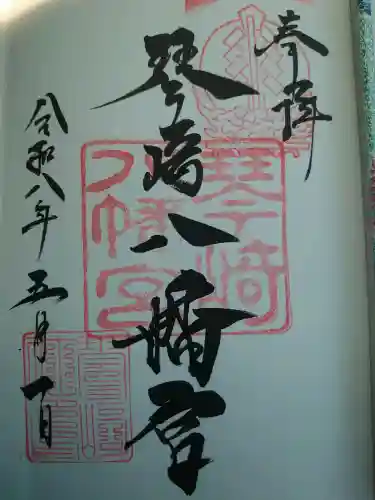 奉拝
琴崎八幡宮
琴崎八幡宮
令和八年五月一日